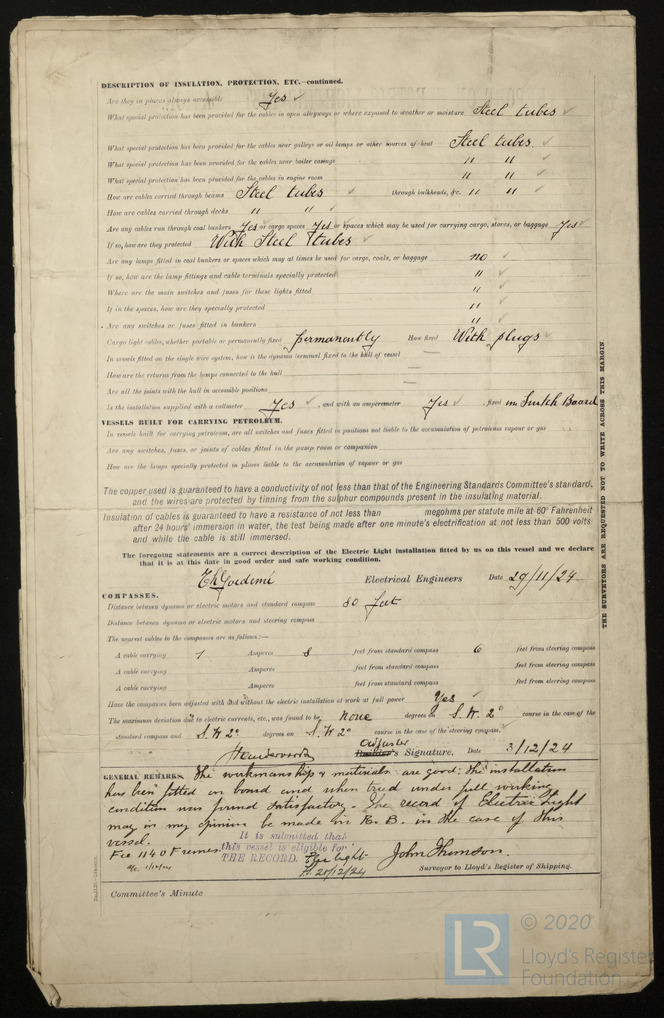 DESCRIPTION OF INSULATION, PROTECTION, ETC.—continued.
Are they in places always accessible Yes ✓
What special protection has been provided for the cables in open alleyways or where exposed to weather or moisture Steel tubes ✓
What special protection has been provided for the cables near galleys or oil lamps or other sources of heat Steel tubes. ✓
What special protection has been provided for the cables near boiler casings " " ✓
What special protection has been provided for the cables in engine room " " ✓
How are cables carried through beams Steel tubes ✓ through bulkheads, &c. " " ✓
How are cables carried through decks " " ✓
Are any cables run through coal bunkers Yes or cargo spaces Yes or spaces which may be used for carrying cargo, stores, or baggage Yes ✓
If so, how are they protected With Steel tubes ✓
Are any lamps fitted in coal bunkers or spaces which may at times be used for cargo, coals, or baggage no ✓
If so, how are the lamp fittings and cable terminals specially protected " ✓
Where are the main switches and fuses for these lights fitted " ✓
If in the spaces, how are they specially protected " ✓
Are any switches or fuses fitted in bunkers " ✓
Cargo light cables, whether portable or permanently fixed permanently How fixed With plugs ✓
In vessels fitted on the single wire system, how is the dynamo terminal fixed to the hull of vessel —
How are the returns from the lamps connected to the hull —
Are all the joints with the hull in accessible positions —
Is the installation supplied with a voltmeter Yes ✓, and with an amperemeter Yes ✓, fixed on Switch Board
VESSELS BUILT FOR CARRYING PETROLEUM.
In vessels built for carrying petroleum, are all switches and fuses fitted in positions not liable to the accumulation of petroleum vapour or gas
Are any switches, fuses, or joints of cables fitted in the pump room or companion
How are the lamps specially protected in places liable to the accumulation of vapour or gas
The copper used is guaranteed to have a conductivity of not less than that of the Engineering Standards Committee's standard,
and the wires are protected by tinning from the sulphur compounds present in the insulating material.
Insulation of cables is guaranteed to have a resistance of not less than megohms per statute mile at 60° Fahrenheit
after 24 hours' immersion in water, the test being made after one minute's electrification at not less than 500 volts
and while the cable is still immersed.
The foregoing statements are a correct description of the Electric Light installation fitted by us on this vessel and we declare
that it is at this date in good order and safe working condition.
Electrical Engineers Date 29/11/24
COMPASSES.
Distance between dynamo or electric motors and standard compass 80 feet
Distance between dynamo or electric motors and steering compass
The nearest cables to the compasses are as follows:—
A cable carrying 1 Amperes 8 feet from standard compass 6 feet from steering compass
A cable carrying Amperes feet from standard compass feet from steering compass
A cable carrying Amperes feet from standard compass feet from steering compass
Have the compasses been adjusted with and without the electric installation at work at full power Yes ✓
The maximum deviation due to electric currents, etc., was found to be none degrees on S.W. 2° course in the case of the
standard compass and S.W. 2° degrees on S.W. 2° course in the case of the steering compass. ✓
Adjuster
Builder's Signature. Date 3/12/24
GENERAL REMARKS. The workmanship & materials are good; the installation
has been fitted on board and when tried under full working
condition was found satisfactory. The record of Electric Light
may in my opinion be made in R. B. in the case of this
vessel.
It is submitted that
this vessel is eligible for
THE RECORD. Elec light
20/12/24
Fee 1140 Francs
John Thomson.
Surveyor to Lloyd's Register of Shipping.
Committee's Minute
THE SURVEYORS ARE REQUESTED NOT TO WRITE ACROSS THIS MARGIN.
LR
© 2020
Lloyd's Register
Foundation